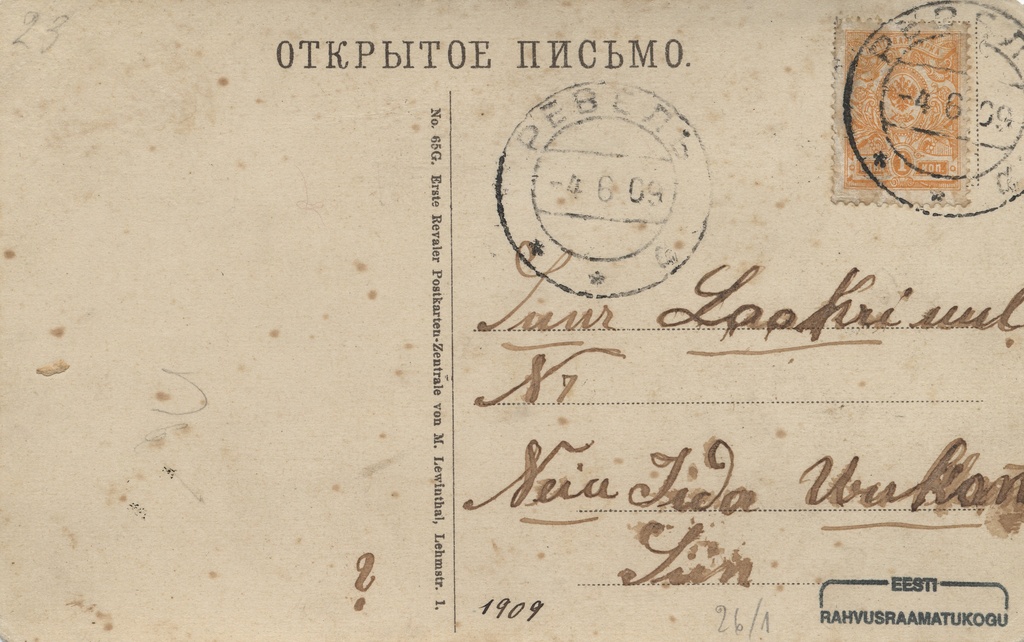 23
ОТКРЫТОЕ ПИСЬМО.
РЕВЕЛЬ
-4 6 09
РЕВЕЛЬ
-4 6 09
1 КОП.
No. 65G. Erste Revaler Postkarten-Zentrale von M. Lewinthal, Lehmstr. 1.
Suur Laakri uul
N 7
Neiu Ida
Siin
?
1909
26/1
EESTI
RAHVUSRAAMATUKOGU